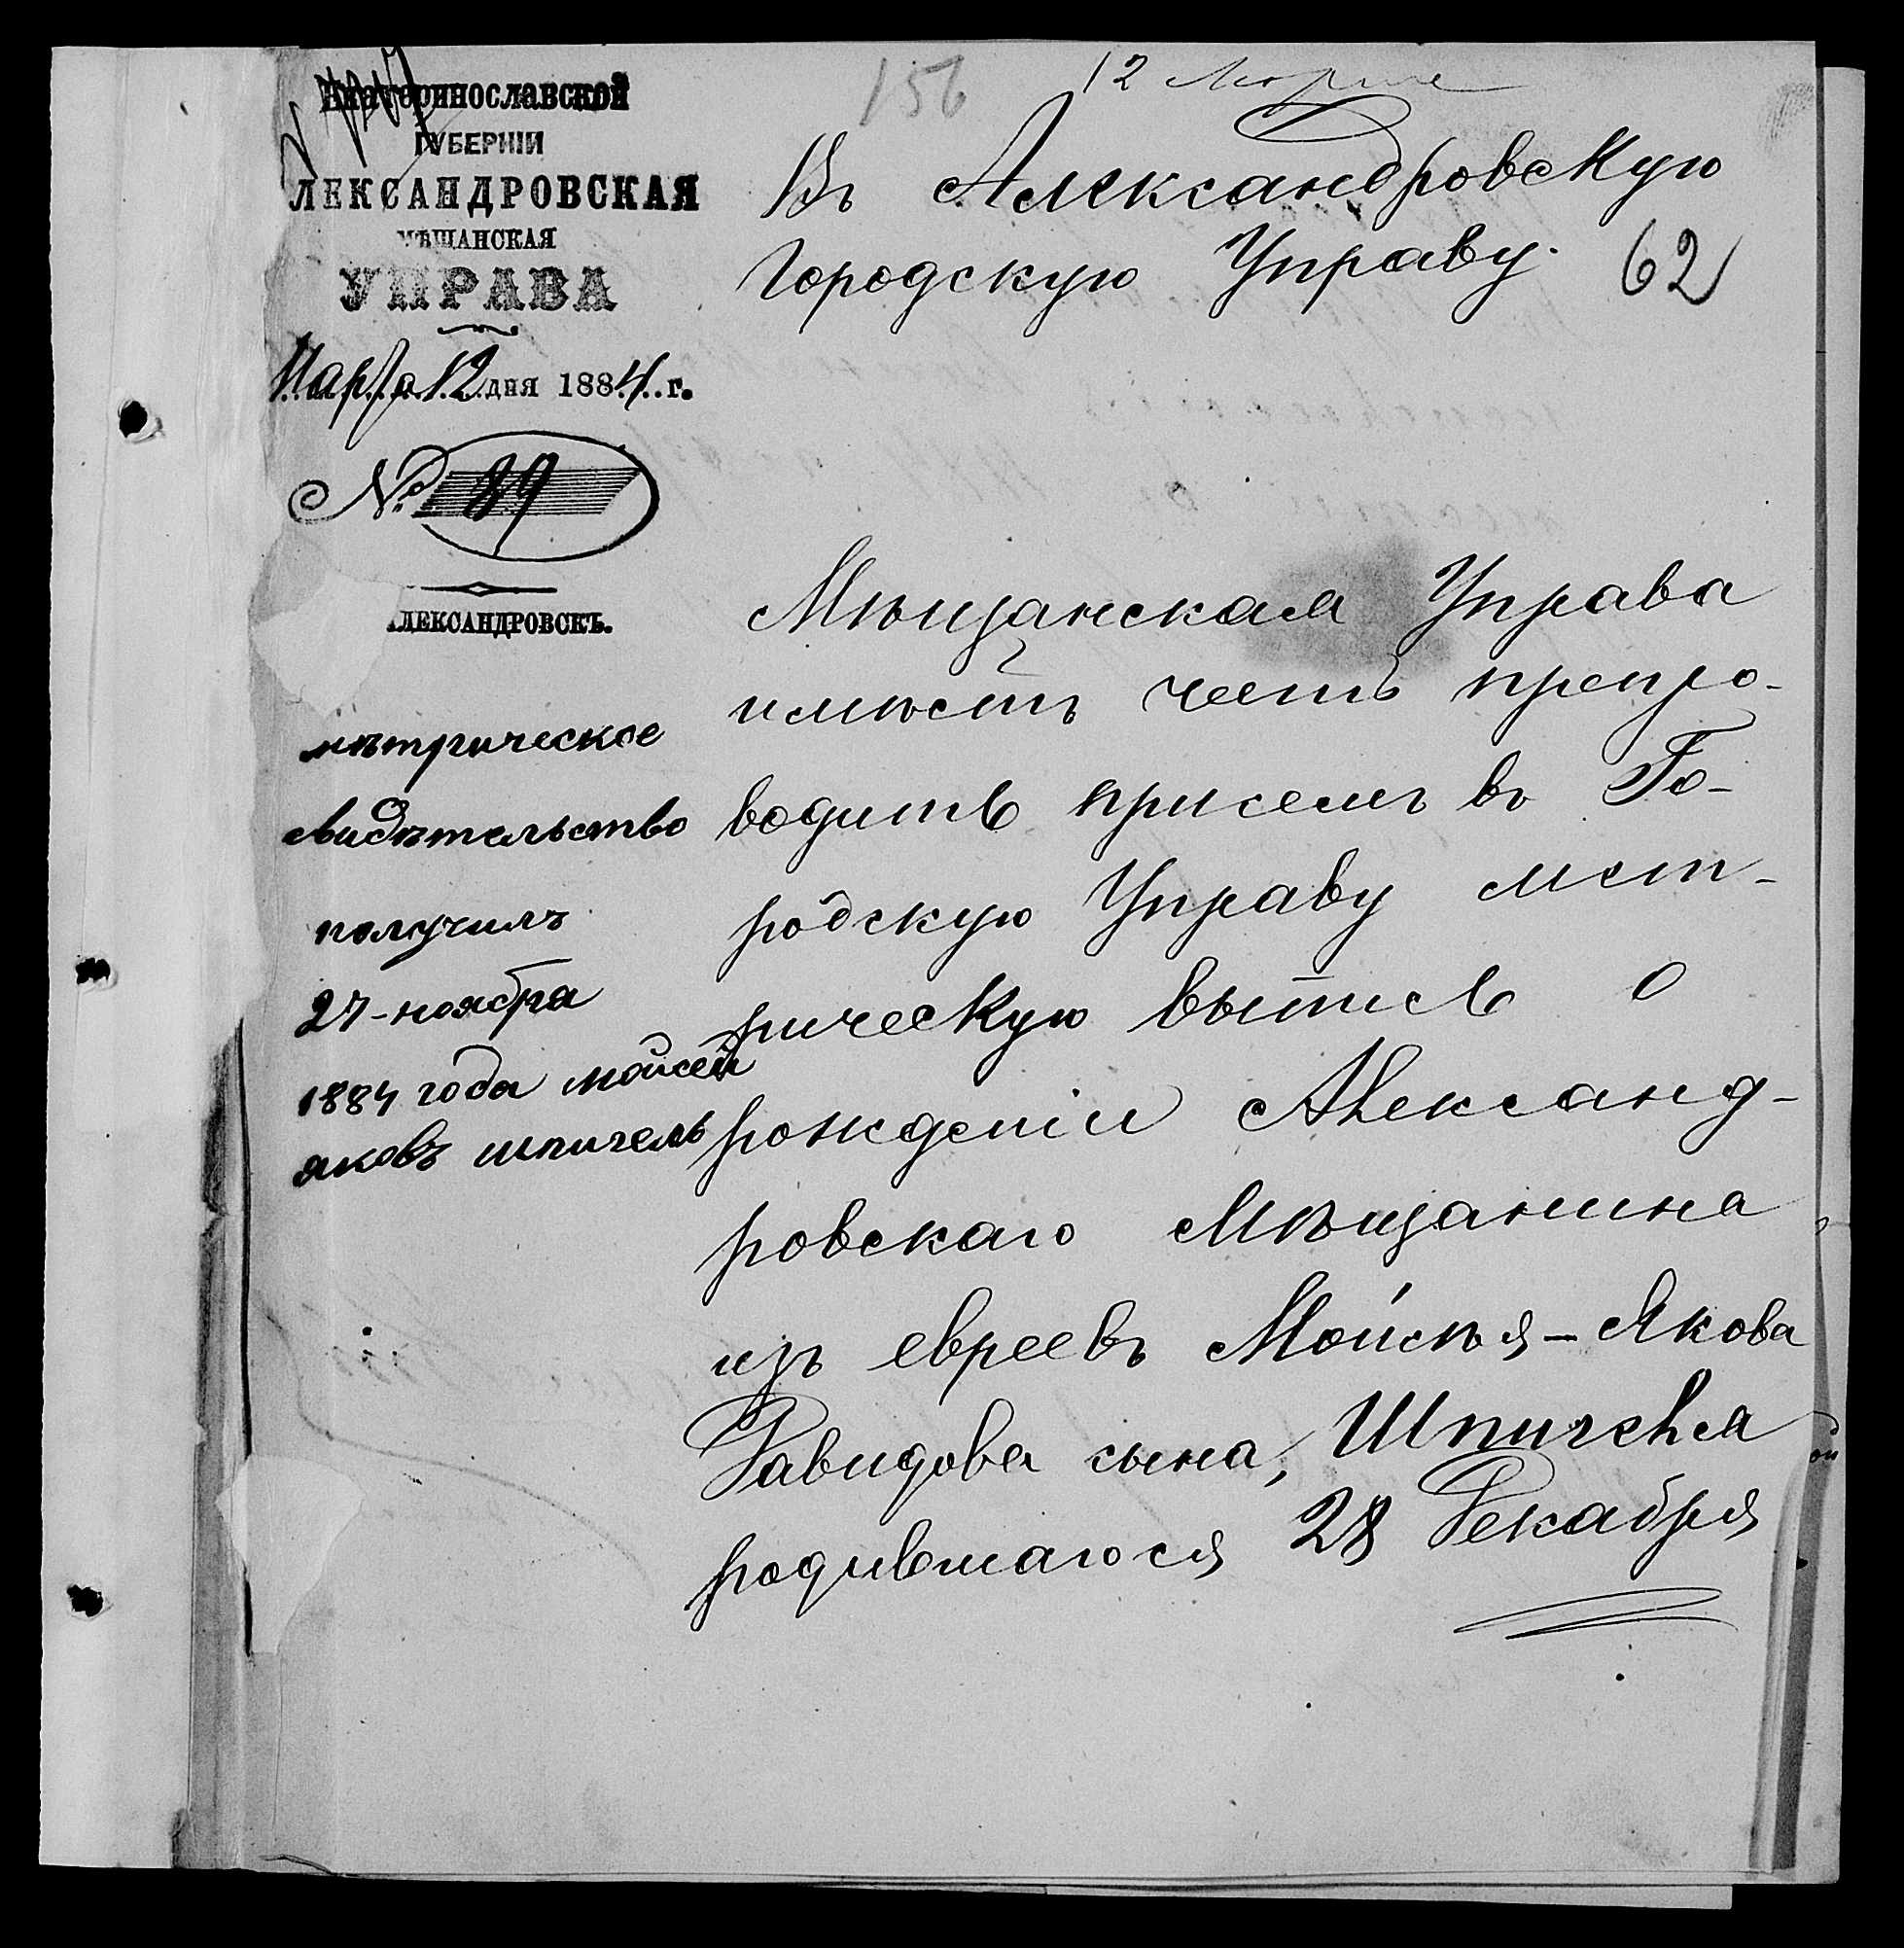 Екатеринославской
ГУБЕРНІИ
ЛЕКСАНДРОВСКАЯ
МѢЩАНСКАЯ
УПРАВА
Марта 12 дня 1884 г.
№ 89
ЛЕКСАНДРОВСКЪ.
156
12 Марта
Въ Александровскую
Городскую Управу.
62
Мѣщанская Управа
имѣетъ честь препро-
водить присемъ въ Го-
родскую Управу мет-
рическую выпись о
рожденіи Александ-
ровскаго Мѣщанина
изъ евреевъ Мойсѣя-Якова
Давидова сына, Шпигеля
родившагося 28 Декабря
мѣтрическое
свидѣтельство
получилъ
27-ноября
1884 года мойсей
яковъ шпигель